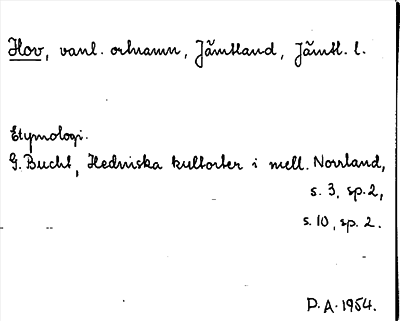 Hov, vanl. ortnamn, Jämtland, Jämtl. l.
Etymologi.
G. Bucht, Hedniska kultorter i mell. Norrland,
s. 3, sp. 2,
s. 10, sp. 2.
P.A. 1954.